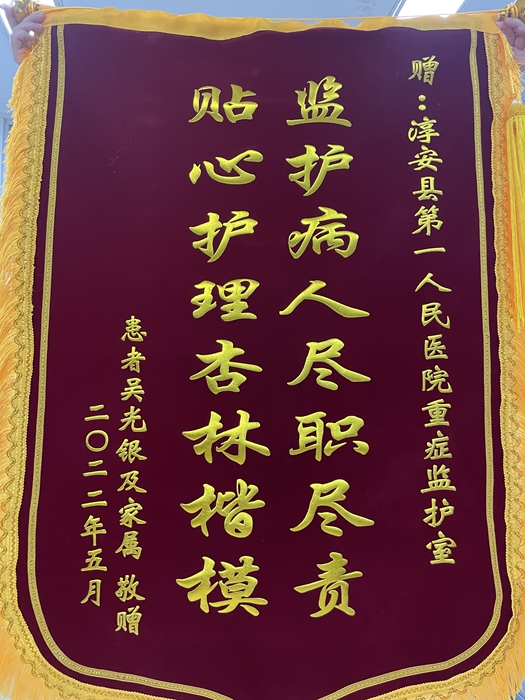 赠：淳安县第一人民医院重症监护室
监护病人尽职尽责
贴心护理杏林楷模
患者吴光银及家属 敬赠
二〇二二年五月